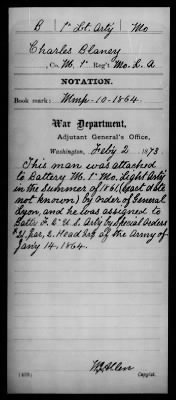 B 1" Lt. Arty Mo
Charles Blaney
, Co. M, 1" Reg't Mo. L. A.
NOTATION.
Book mark: Mmp-10-1864.
War Department,
Adjutant General's Office,
Washington, Feby 2, 1873
This man was attached
to Battery M. 1" Mo. Light Arty
in the summer of 1861 (exact date
not known) by order of General
Lyon, and he was assigned to
Batty F. 2" U.S. Arty by Special Orders
#21, par. 2. Head Qrs of the Army of
Jany 14, 1864.
Allen
Copyist.